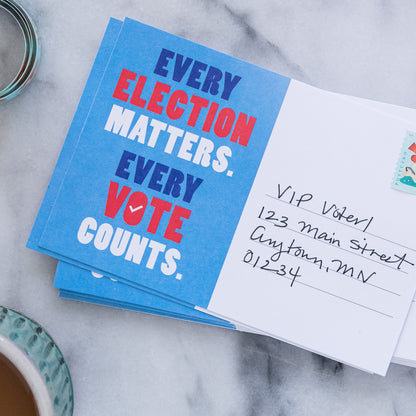 EVERY
ELECTION
MATTERS.
EVERY
VOTE
COUNTS.
VIP Voter!
123 Main Street
Anytown, MN
01234